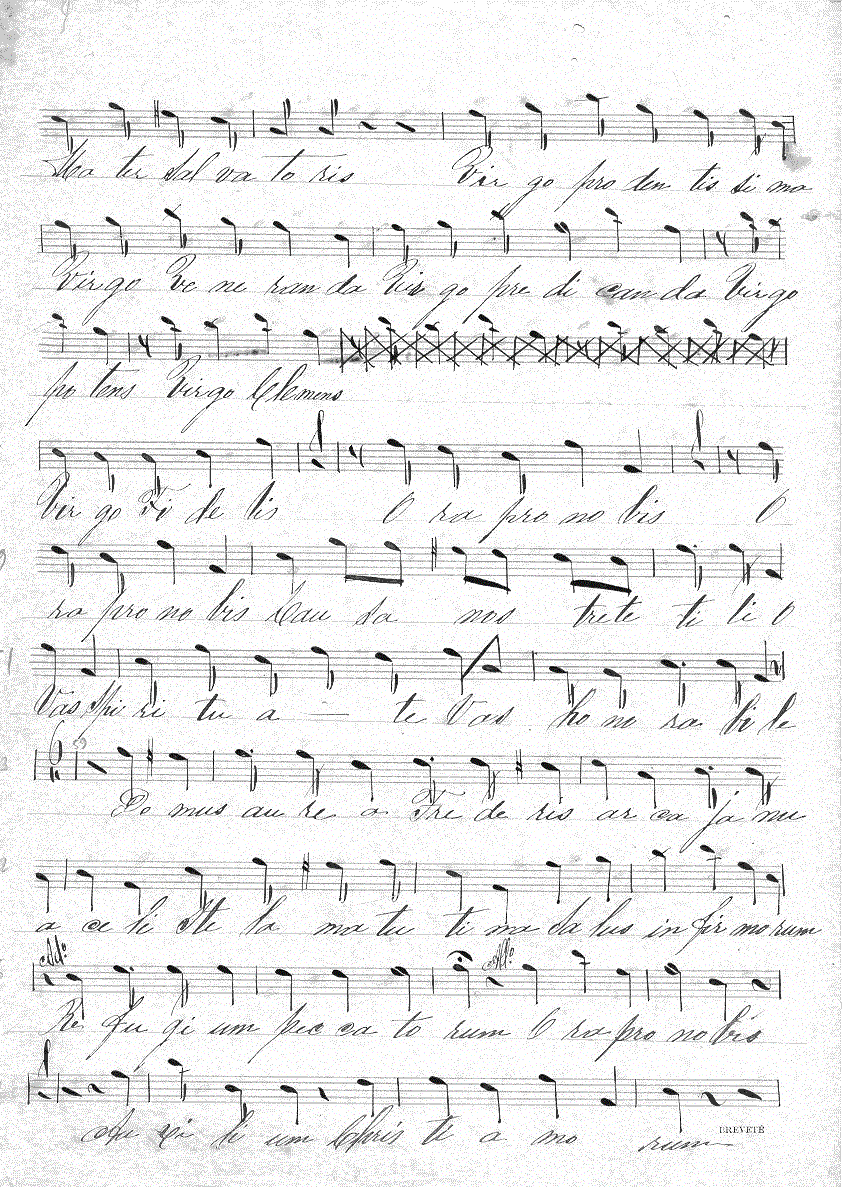 Ma ter Sal va to ris Vir go pro den tis si ma
Virgo Ve ne ran da Vir go pre di can da Virgo
po tens Virgo Clemens
Vir go Fi de lis O ra pro no bis O
ra pro no bis Cau sa nos trete ti ti O
Vas Spi ri tu a — te Vas ho no ra bi le
6
Do mus au re a Fre de ris ar ca ja nu
a ce li Ste la ma tu ti na Sa lus in fir morum
Ad.º All.º
Re fu gi um pec ca to rum O ra pro no bis
Au xi li um Chris ti a no rum
BREVETÉ